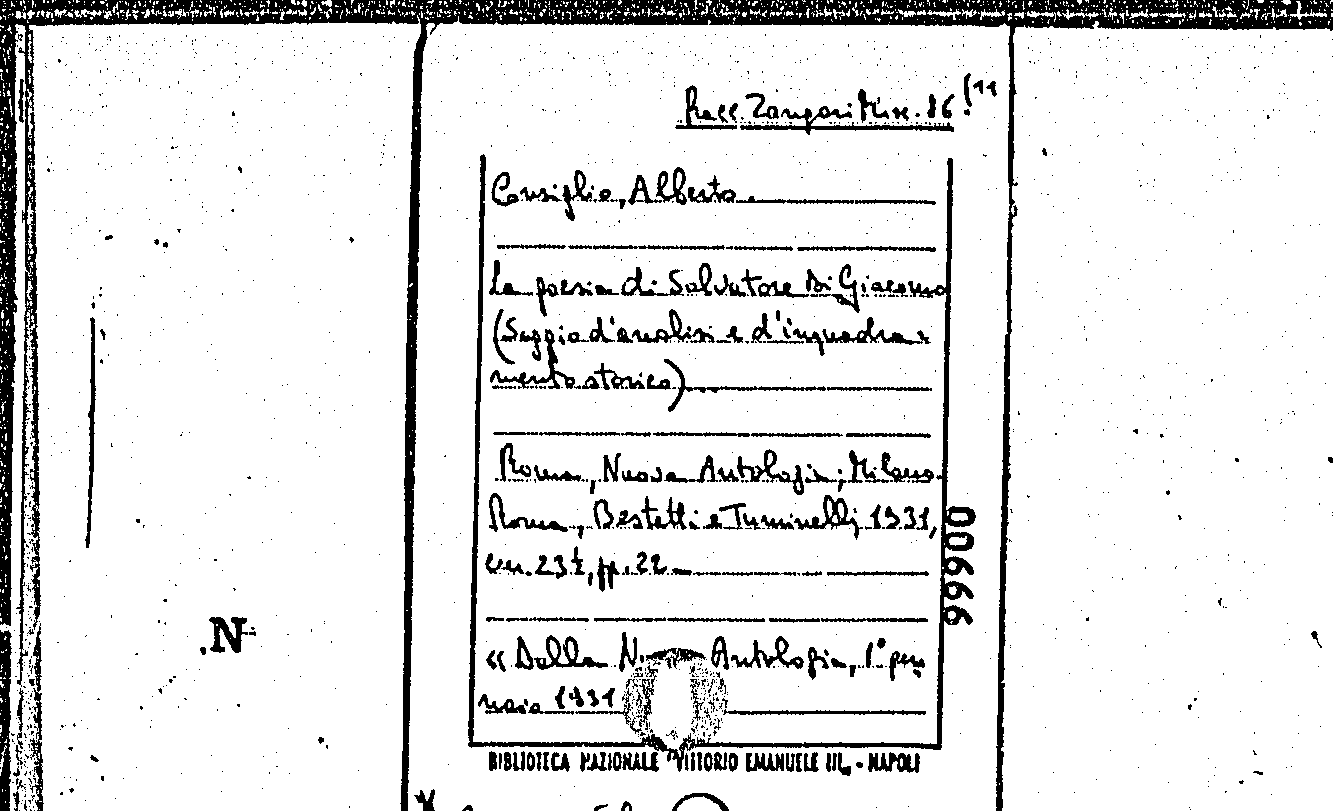 Racc. Zangari Misc. 86 (11
Consiglio, Alberto.
La poesia di Salvatore Di Giacomo
(Saggio d'analisi e d'inquadra-
mento storico)...
Roma, Nuova Antologia; Milano-
Roma, Bestetti e Tumminelli, 1931,
cm. 23½, pp. 22
« Dalla Antologia, 1° gen
naio 1931
BIBLIOTECA NAZIONALE VITTORIO EMANUELE III. - NAPOLI
00666
.N